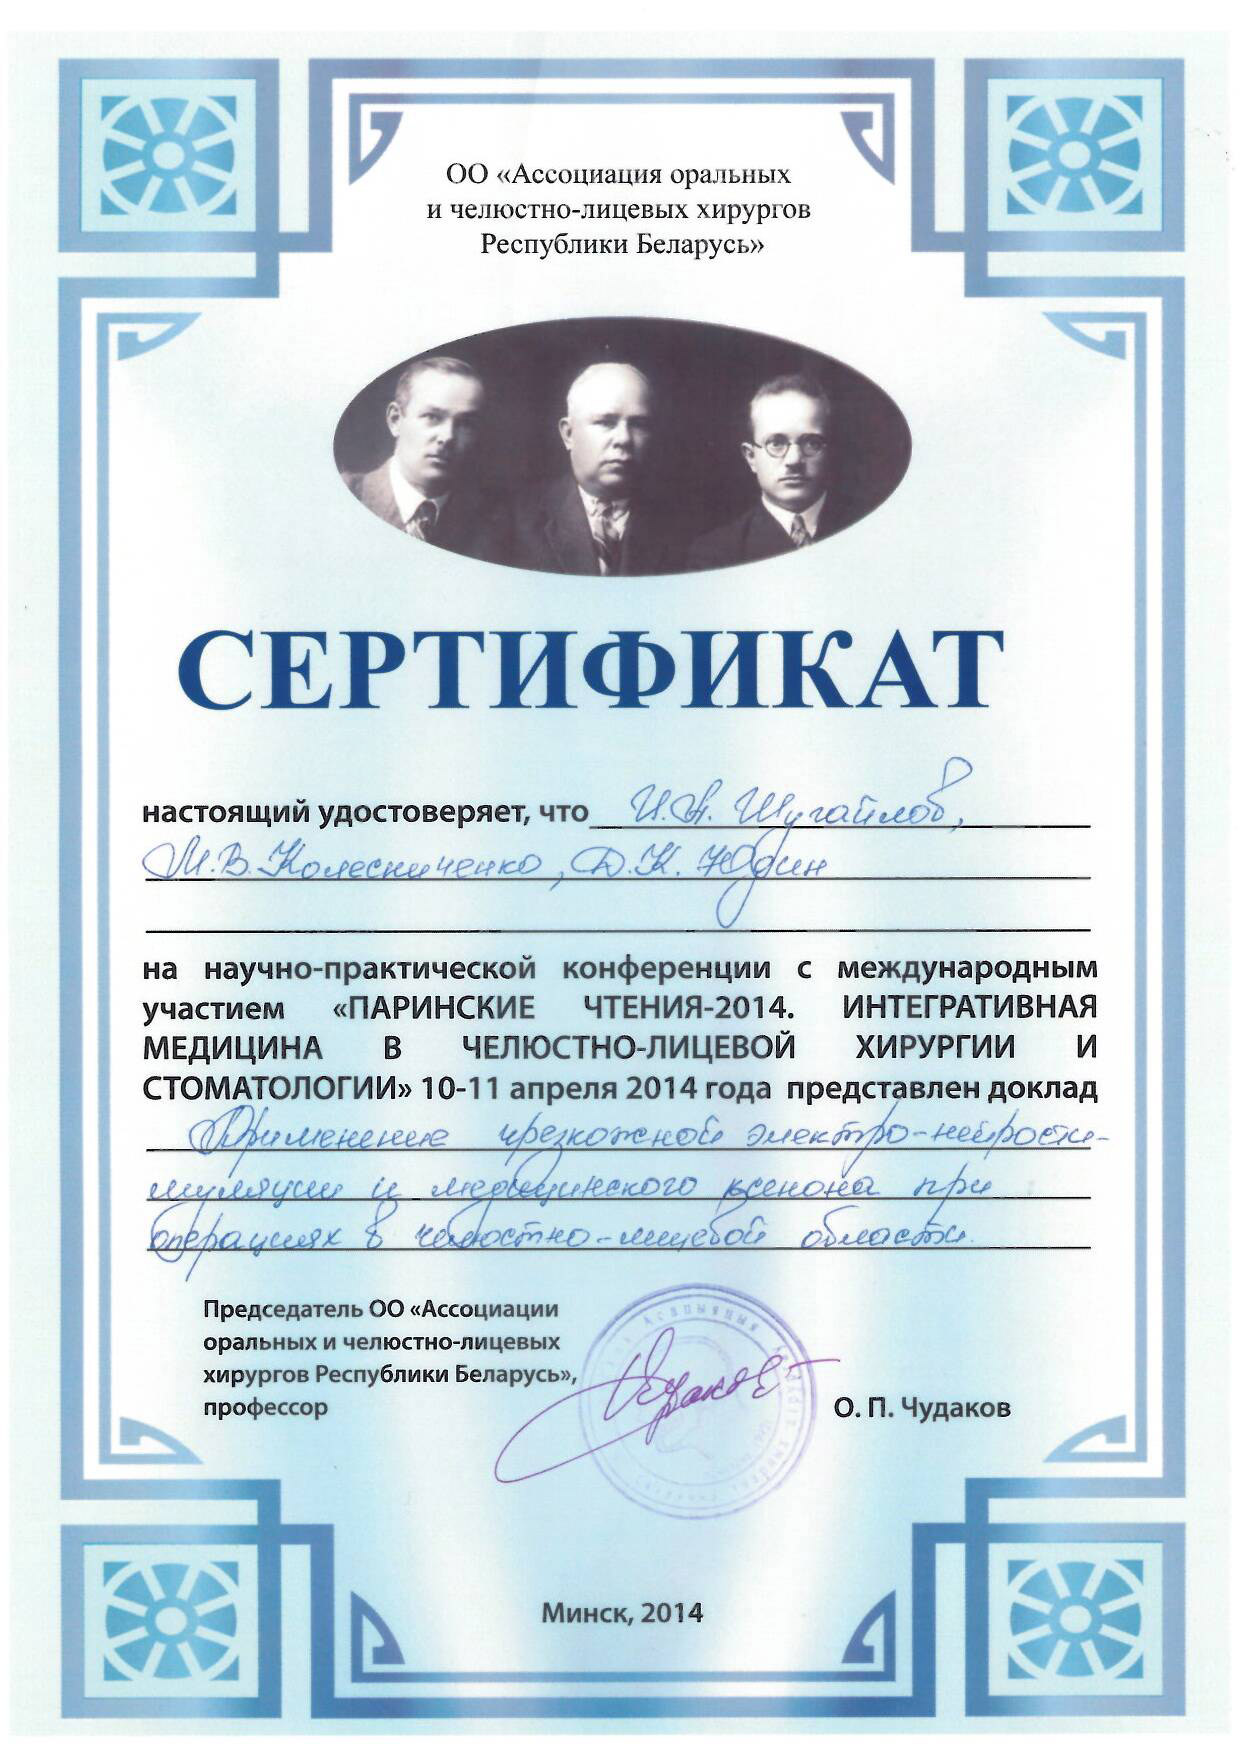 ОО «Ассоциация оральных
и челюстно-лицевых хирургов
Республики Беларусь»
СЕРТИФИКАТ
настоящий удостоверяет, что И.А. Шугайлов,
М.В. Колесниченко, Д.К. Юдин
на научно-практической конференции с международным
участием «ПАРИНСКИЕ ЧТЕНИЯ-2014. ИНТЕГРАТИВНАЯ
МЕДИЦИНА В ЧЕЛЮСТНО-ЛИЦЕВОЙ ХИРУРГИИ И
СТОМАТОЛОГИИ» 10-11 апреля 2014 года представлен доклад
Применение чрезкожной электро-нейрости-
муляции и медицинского ксенона при
операциях в челюстно-лицевой области.
Председатель ОО «Ассоциации
оральных и челюстно-лицевых
хирургов Республики Беларусь»,
профессор
О. П. Чудаков
Минск, 2014